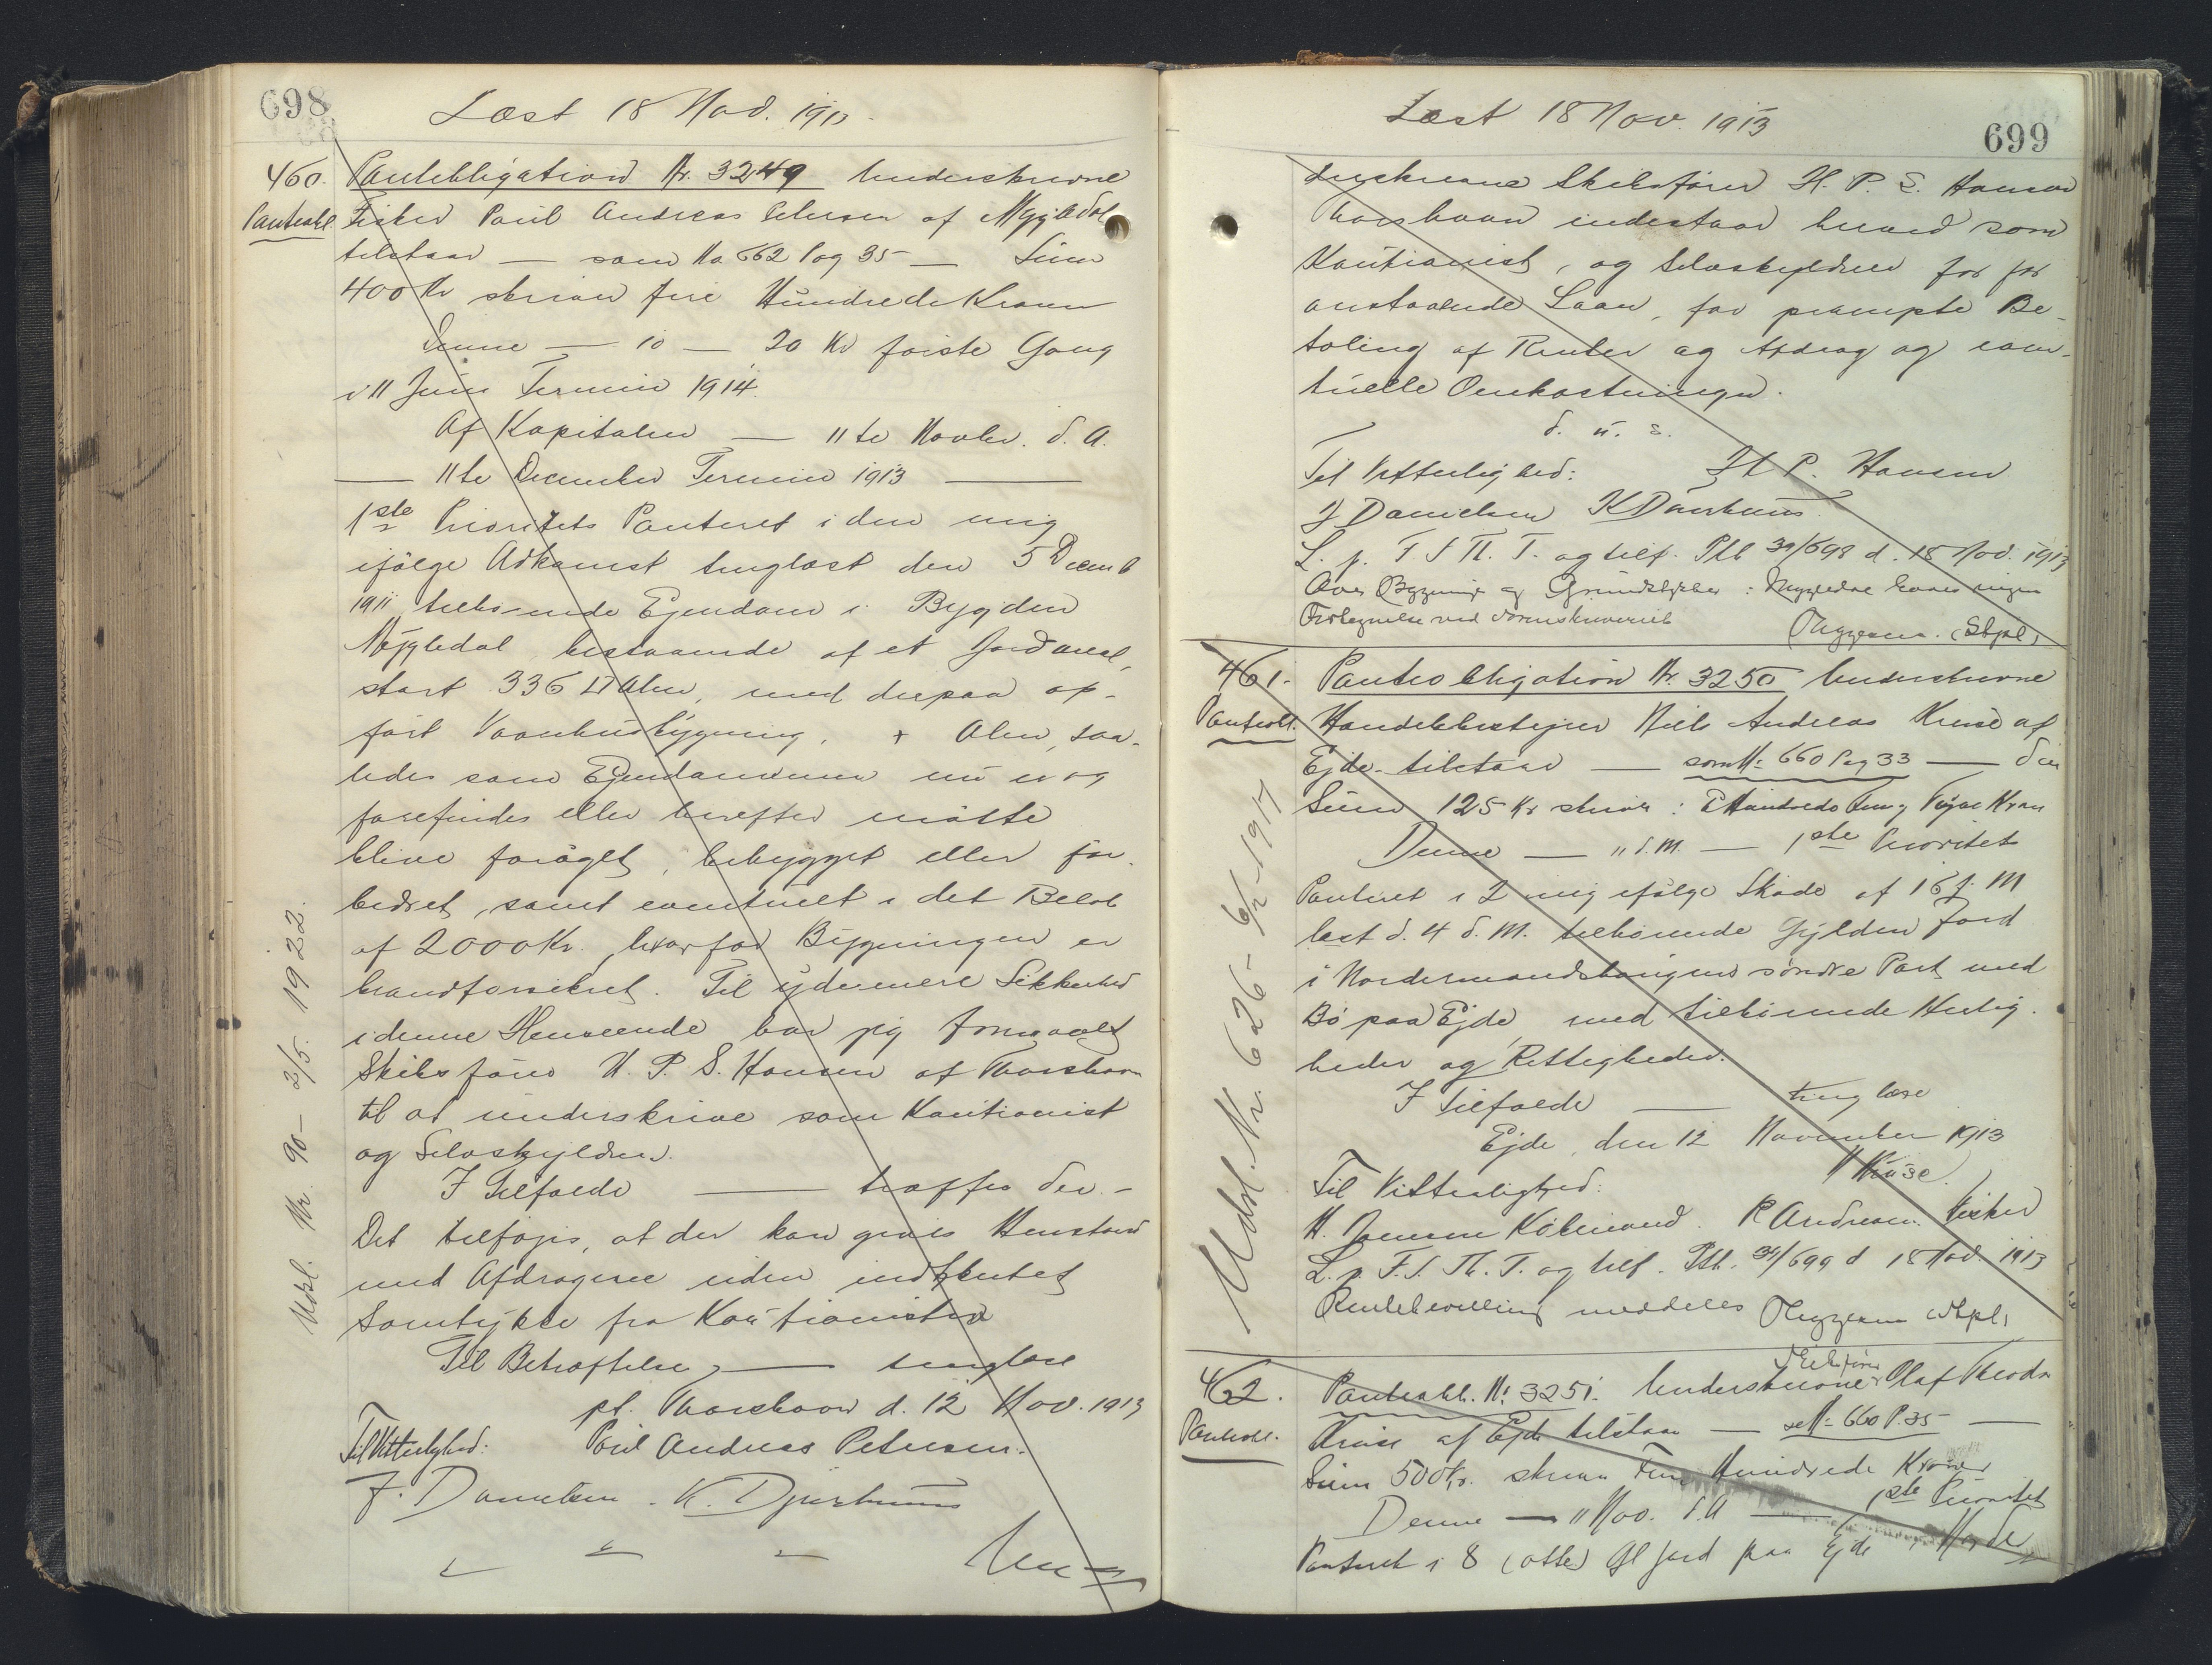 698
Læst 18 Nov. 1913.
460. Panteobligation Nr. 3249 Underskrevne
Panteobl. Fisker Poul Andreas Petersen af Mygledal
tilstaar — som No 662 Pag 35 — Sum
400 Kr skriver fire Hundrede Kroner
Denne — 10 — 20 Kr første Gang
i 11 Juni Termin 1914.
Af Kapitalen — 11te Novbr. d. A.
— 11te December Termin 1913 —
1ste Prioritets Panteret i den mig
ifølge Adkomst tinglæst den 5 Decemb
1911 tilhørende Ejendom i Bygden
Mygledal bestaaende af et Jordareal,
stort 336 □ Alen, med derpaa op-
ført Vaanhusbygning, + Alen, saa-
ledes som Ejendommen nu er og
forefindes eller herefter maatte
blive forøget, bebygget eller for-
bedret, samt eventuelt i det Beløb
af 2000 Kr. hvorfor Bygningen er
brandforsikret. Til ydermere Sikkerhed
i denne Henseende har jeg formaaet
Skibsfører H. P. S. Hansen af Thorshavn
til at underskrive som Kautionist
og Selvskyldner.
I Tilfælde — træffes der. —
Det tilføjes, at der kan gives Henstand
med Afdragene uden indhentet
Samtykke fra Kautionisten
Til Bekræftelse, — tinglæse
pt. Thorshavn d. 12 Nov. 1913
Til Vitterlighed: Poul Andreas Petersen.
J. Danielsen. K. Djurhuus
Un-
Udsl. Nr. 90 — 2/5. 1922.
699
Læst 18 Nov. 1913
derskrevne Skibsfører H. P. S. Hansen
Thorshavn indestaar herved som
Kautionist, og Selvskyldner for for
anstaaende Laan, for prompte Be-
taling af Renter og Afdrag og even-
tuelle Omkostninger.
d. u. s.
Til Vitterlighed: H. P. Hansen
J Danielsen K Djurhuus
L. p. F. S Th. T. og tilf. Ptb 39/698 d. 18 Nov. 1913
Over Bygning og Grundstykke i Mygledal haves ingen
Fortegnelse ved Sorenskriveriet
(Stpl)
461. Panteobligation Nr. 3250 Underskrevne
Panteobl. Handelsbestyrer Niels Andreas Kruse af
Ejde tilstaar — som No 660 Pag 33 — den
Sum 125 Kr skriver: Et Hundrede Fem og Tyve Kroner
Denne — 11 d. M. — 1ste Prioritets
Panteret i 2 mig ifølge Skøde af 16 f. M
læst d. 4 d. M. tilhørende Gylden Jord
i Nordermandshaugens søndre Part med
Bø paa Ejde, med tilhørende Herlig-
heder og Rettigheder.
I Tilfælde — tinglæse
Ejde, den 12 November 1913
N Kruse
Til Vitterlighed:
H. Joensen Købmand. P. Andreasen. Fisker
L. p. F. S. Th. T. og tilf. Ptb. 39/699 d 18 Nov. 1913
Rentebevilling meddeles (Stpl)
Udsl. Nr. 626 — 6/2 1917
462. Panteobl. No 3251. Underskrevne Skibsfører Olaf Theodor
Panteobl. Kruse af Ejde tilstaar — se No 660 P. 35 —
Sum 500 Kr. skriver Fem Hundrede Kroner
Denne — 11 Nov. d. A — 1ste Prioritets
Panteret i 8 (otte) Gl Jord paa Ejde